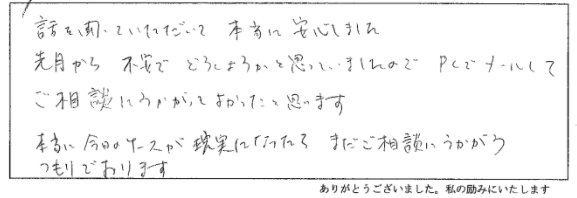 話を聞いていただいて 本当に安心しました
先月から 不安で どうしようかと思っていましたので PCでメールして
ご相談にうかがってよかったと思います
本当に今日のケースが現実になったら またご相談にうかがう
つもりであります
ありがとうございました。私の励みにいたします